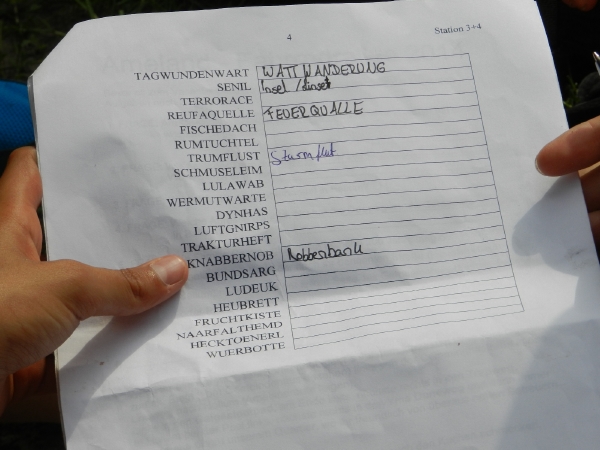 4
Station 3+4
TAGWUNDENWART WATTWANDERUNG
SENIL Insel / Linse
TERRORACE
REUFAQUELLE FEUERQUALLE
FISCHEDACH
RUMTUCHTEL
TRUMFLUST Sturmflut
SCHMUSELEIM
LULAWAB
WERMUTWARTE
DYNHAS
LUFTGNIRPS
TRAKTURHEFT
KNABBERNOB Robbenbank
BUNDSARG
LUDEUK
HEUBRETT
FRUCHTKISTE
NAARFALTHEMD
HECKTOENERL
WUERBOTTE